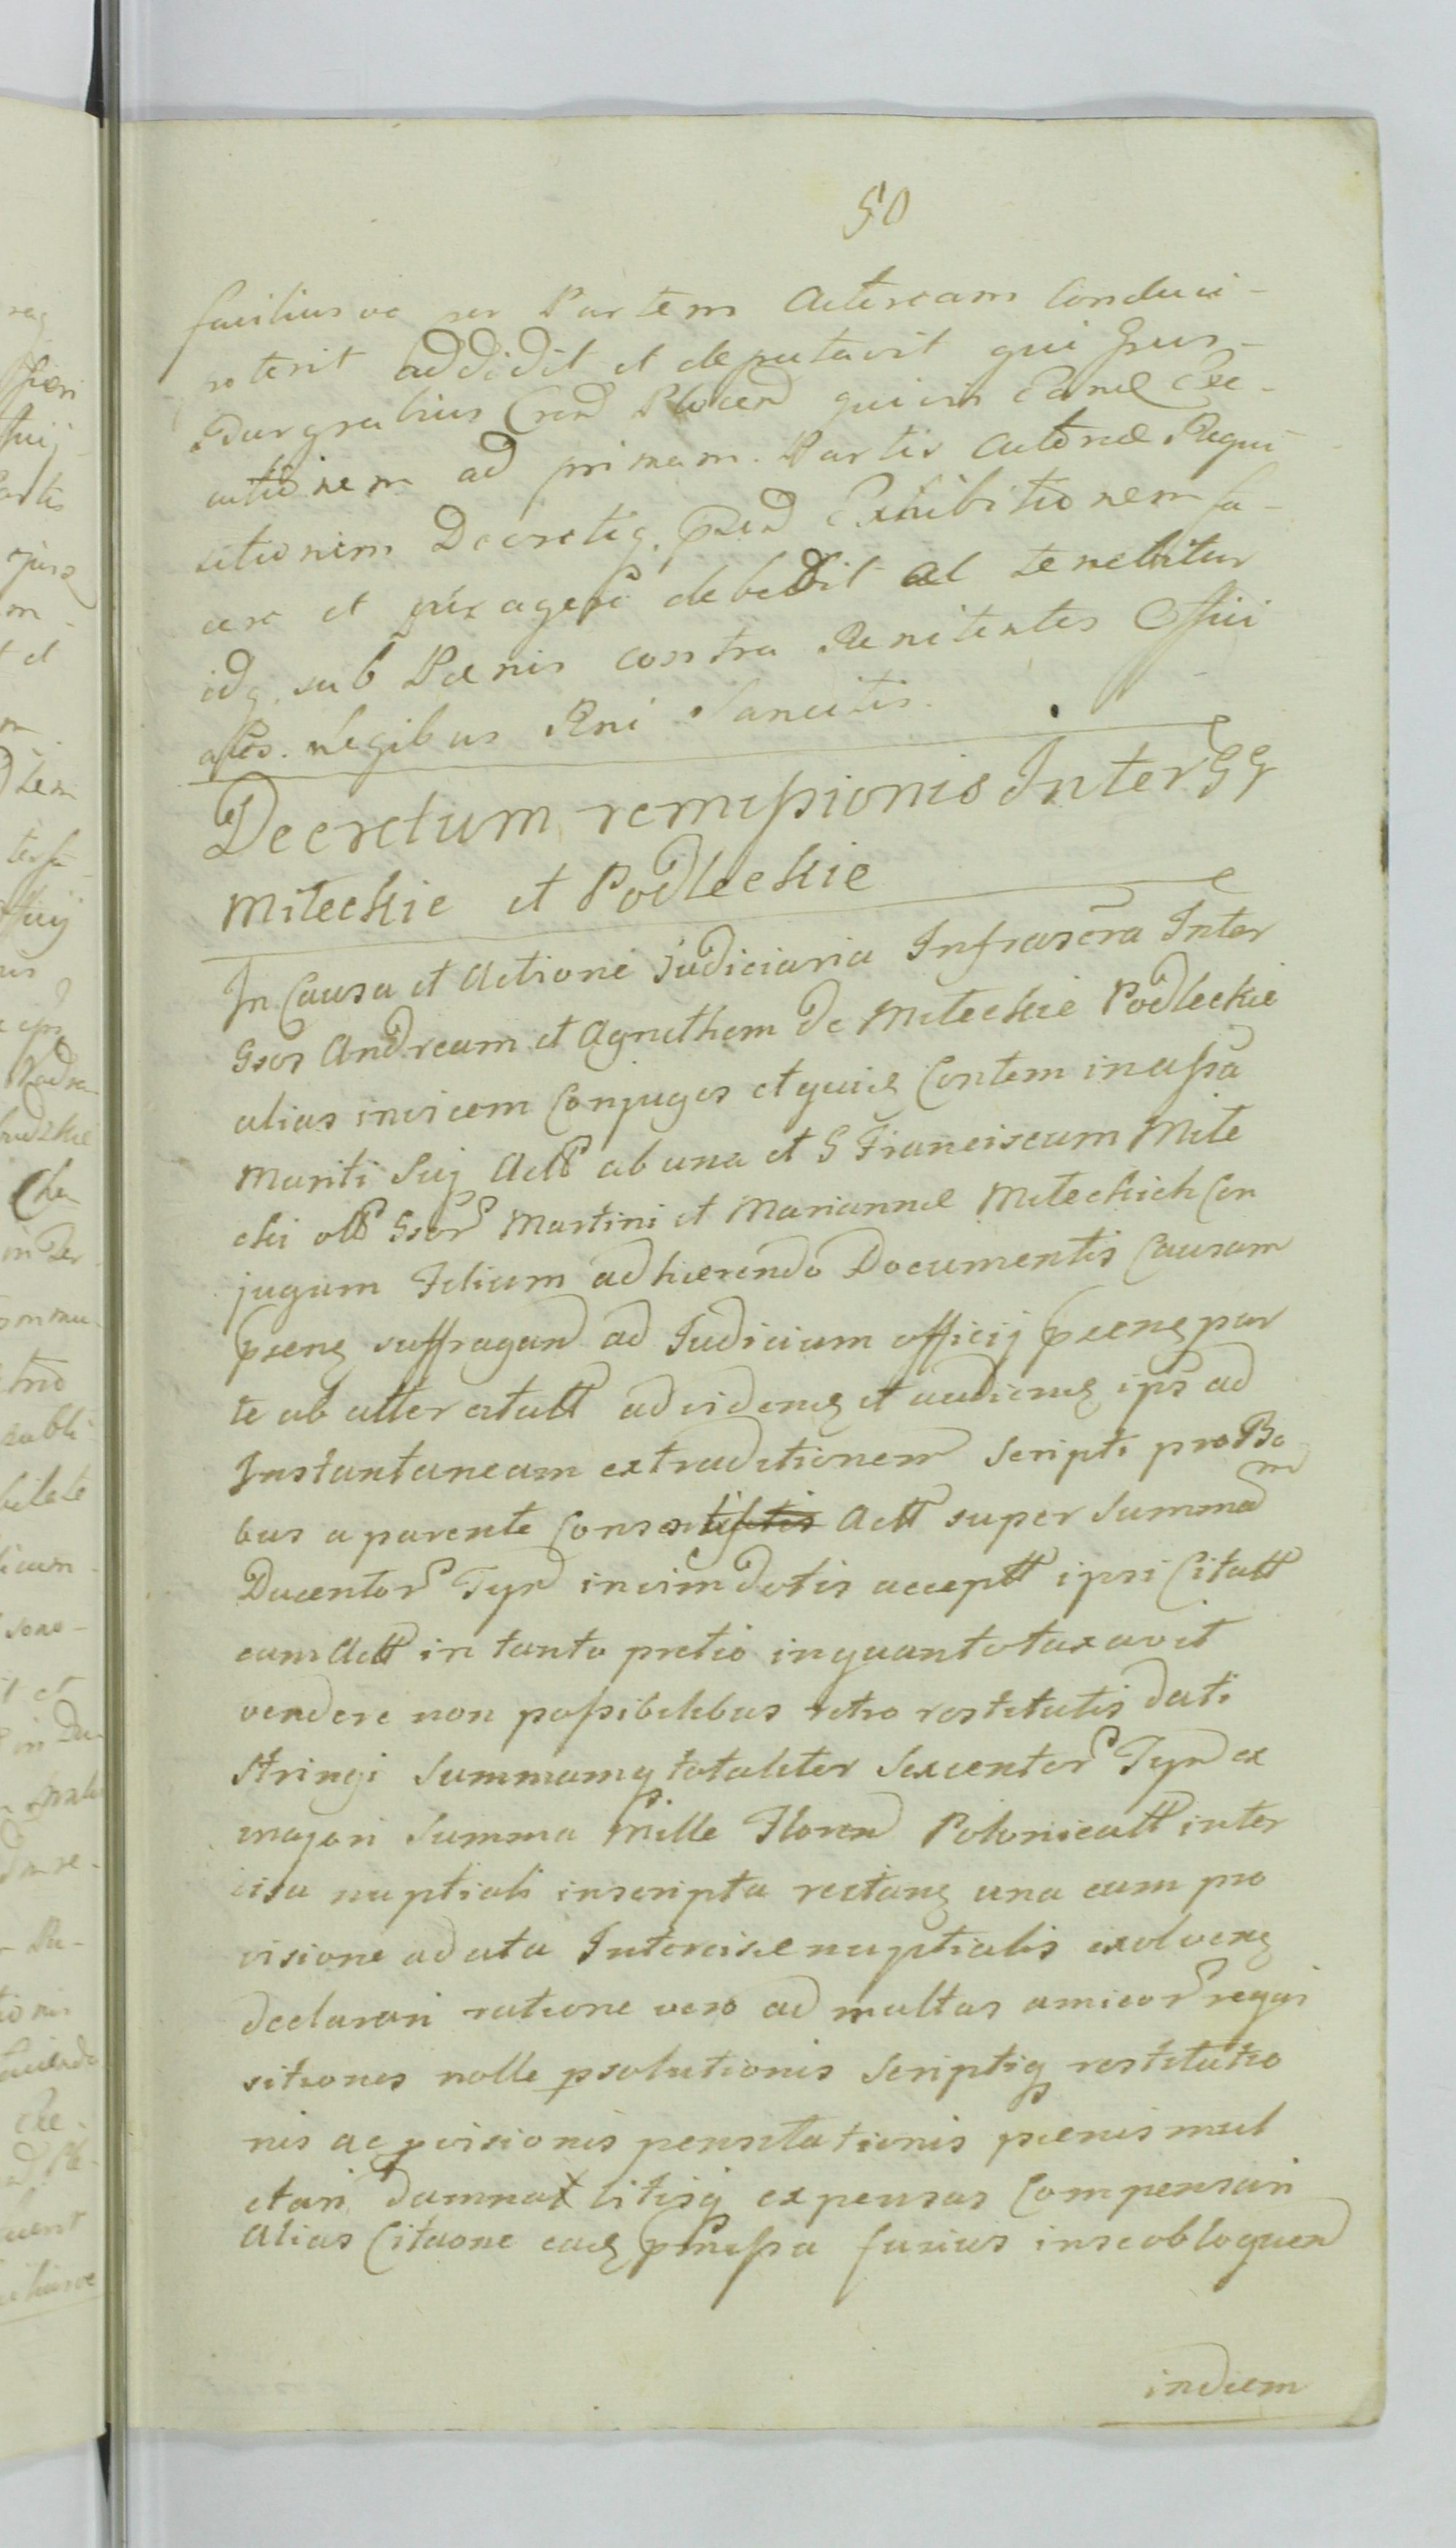 50
faciliusve per Partem Actoream Conduci-
poterit addidit et deputavit qui frus-
Burgrabius Cren Plocen quicun Eande Exe-
cutionem ad primam Partis Actoreæ Requi-
sitionem Decretiq. Exhibitionem fa-
cere et peragere debebit ac tenebitur
idq. sub Pænis contra Renitentes Offici
ales. Legibus Rni Sancitis.
Decretum remissionis Inter GG
Miteckie et Podleckie
In Causa et Actione Judiciaria Infrascra Inter
Gsos Andream et Agnethem de Miteckie Podleckie
alias invicem Conjuges et quide Contem in assa
Mariti Sui Act ab una et G Franciscum Mite
cki olt Gsor Martini et Mariannæ Miteckich Con
jugum Filium adhærendo Documentis Causam
psens suffragan ad Judicium officij psens par
te ab altera citatt ad videns et audiens ips ad
Instantaneam extraditionem Scripti pro Bo
bus a parente Actt super Summam
Ducentor Tynf in vim dotis accept ipsi Citatt
cum Actt in tanto pretio in quanto taxavit
vendere non possibilibus retro restitutis dati
stringi Summamq totaliter Sexcentor Tynf ex
majori Summa Mille Floren Polonicatt inter
cisa nuptiali inscripta restans una cum pro
visione ad ata Intercisæ nuptialis exolvens
declarari ratione vero ad multas amicor requi
sitiones nolle psolutionis Scriptiq restitutio
nis ac pvisionis pensitationis pænis mul
ctari damna litisq expensas Compensari
Alias Citaone eade pmissa fusius in se obloquen
indiem